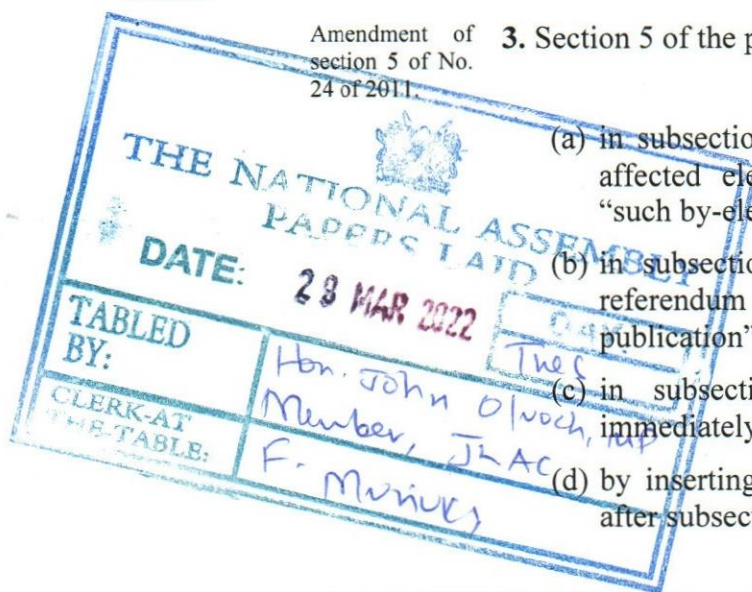 Amendment of
section 5 of No.
24 of 2011.
3. Section 5 of the p
(a) in subsectio
affected ele
“such by-ele
(b) in subsectio
referendum
publication”
(c) in subsecti
immediately
(d) by inserting
after subsect
THE NATIONAL ASSEMBLY
PAPERS LAID
DATE: 29 MAR 2022
DAY.
Tues
TABLED
BY:
Hon. John MP
Member, JLAC
CLERK-AT
THE-TABLE:
F.